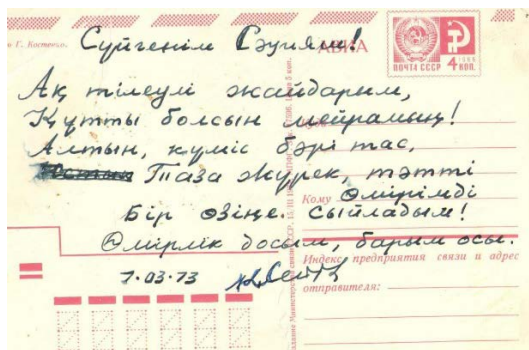 Сүйгенім Сәуям!
АВИА
ПОЧТА СССР 4 КОП.
Ақ тілеулі жайдарым,
Құтты болсын мейрамың!
Алтын, күміс бәрі тас,
Таза жүрек, тәтті
Кому
өмірімді
Бір өзіңе. сыйладым!
Өмірлік досым, барым осы.
7.03.73
Индекс предприятия связи и адрес
отправителя: